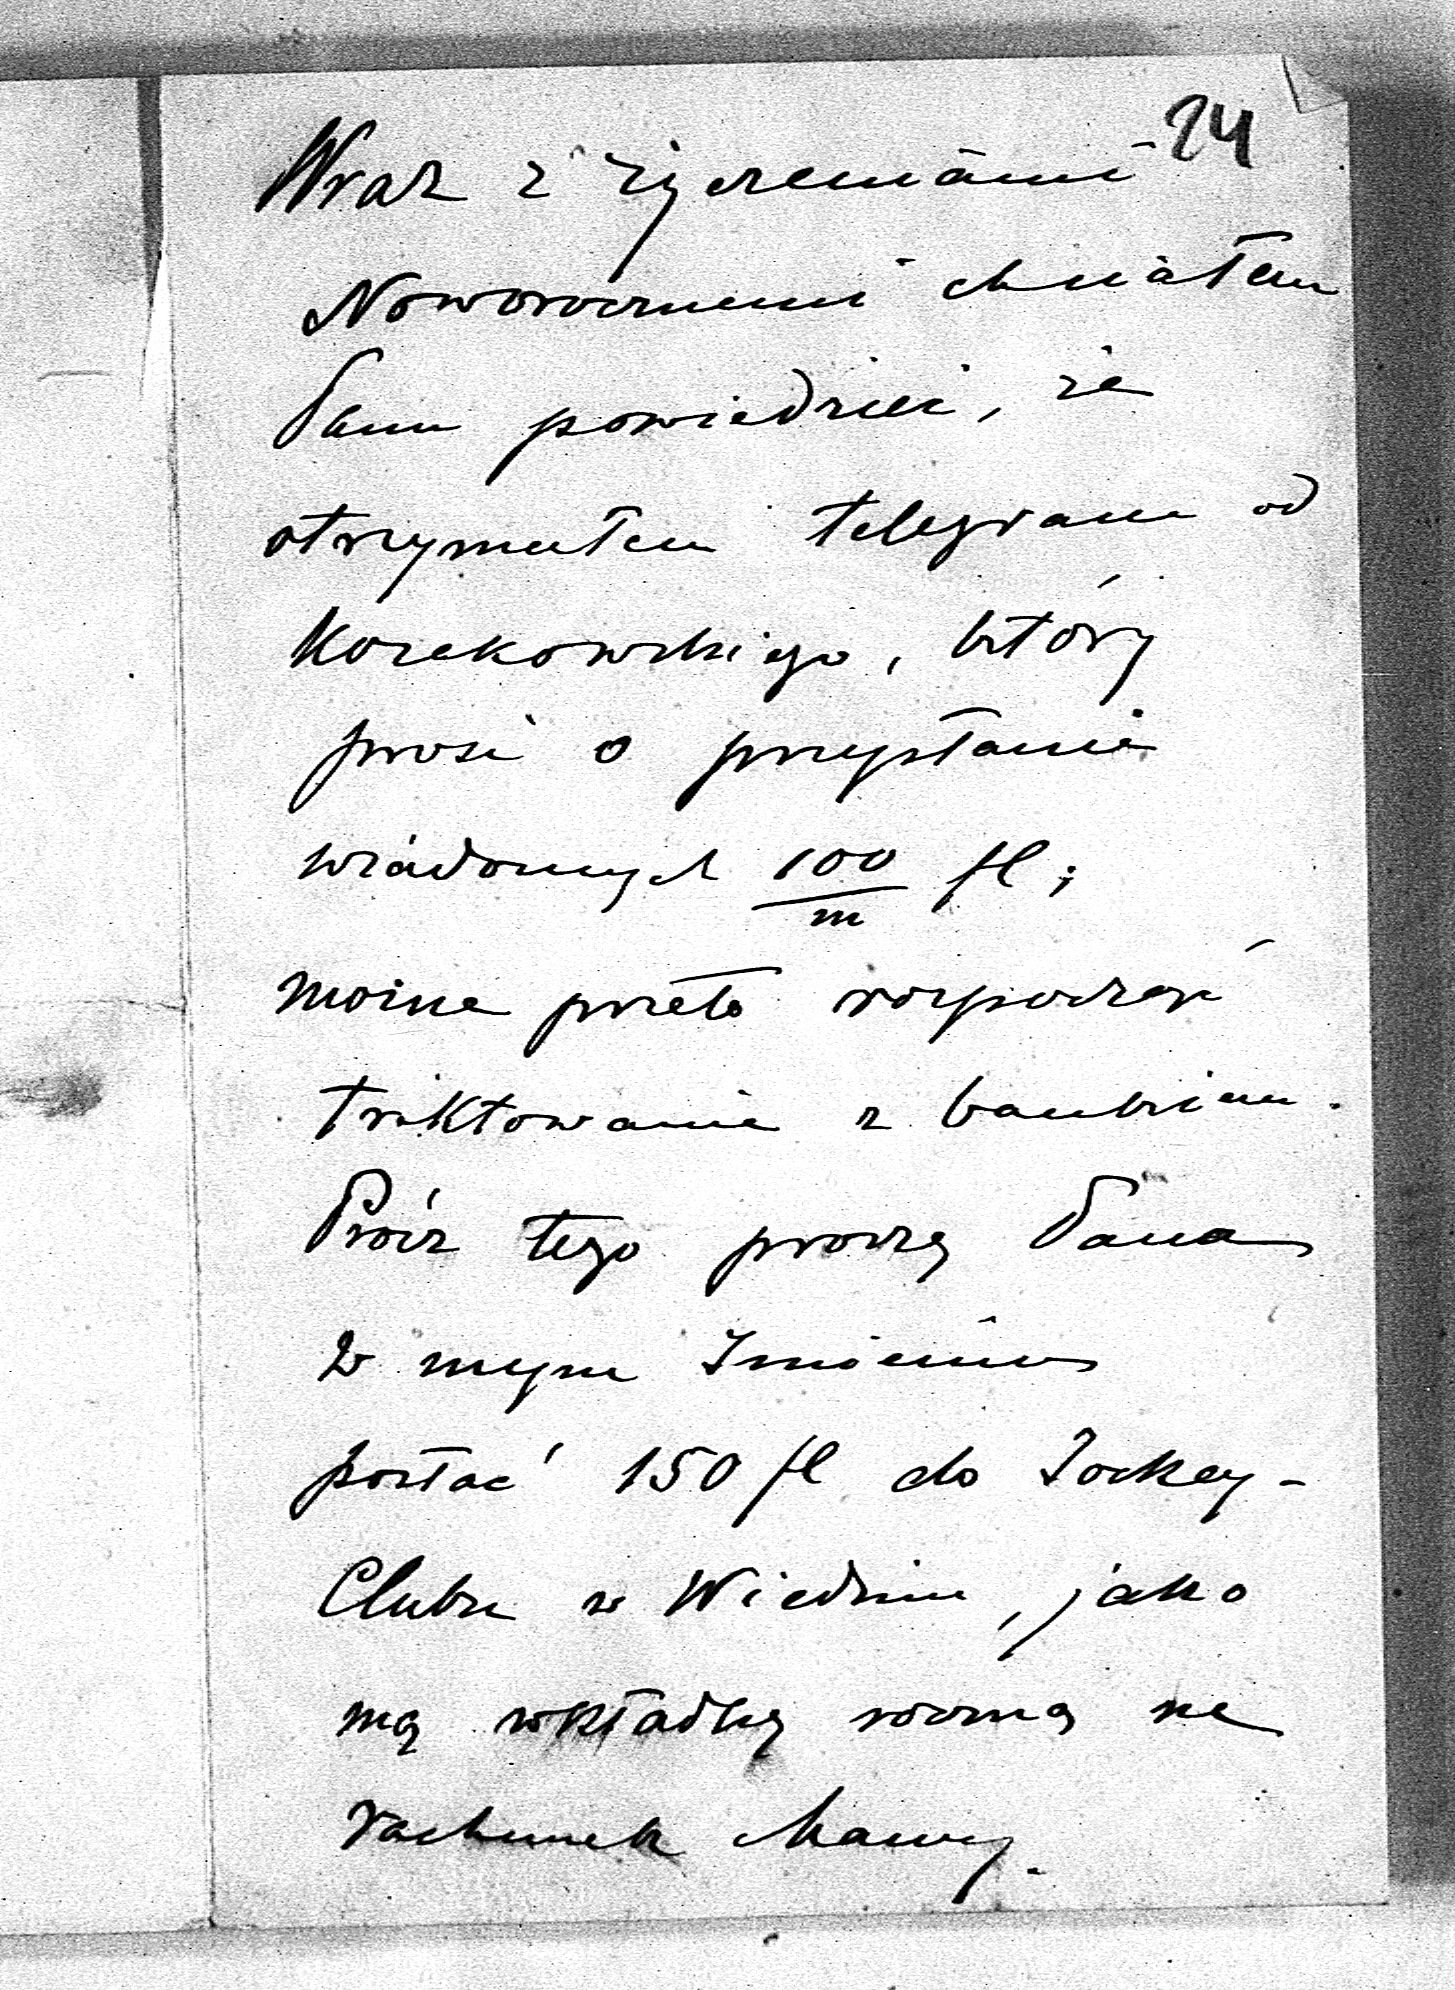 24
Wraz z życzeniami
Noworocznemi chciałem
Panu powiedzieć, że
otrzymałem telegram od
Kozakowskiego, który
prosi o przysłanie
wiadomych 100/m fl;
można przeto rozpocząć
traktowanie z bankiem.
Prócz tego proszę Pana
w mym Imieniu
posłać 150 fl do Jockey-
Clubu w Wiedniu, jako
mą wkładkę roczną na
rachunek Mamy.